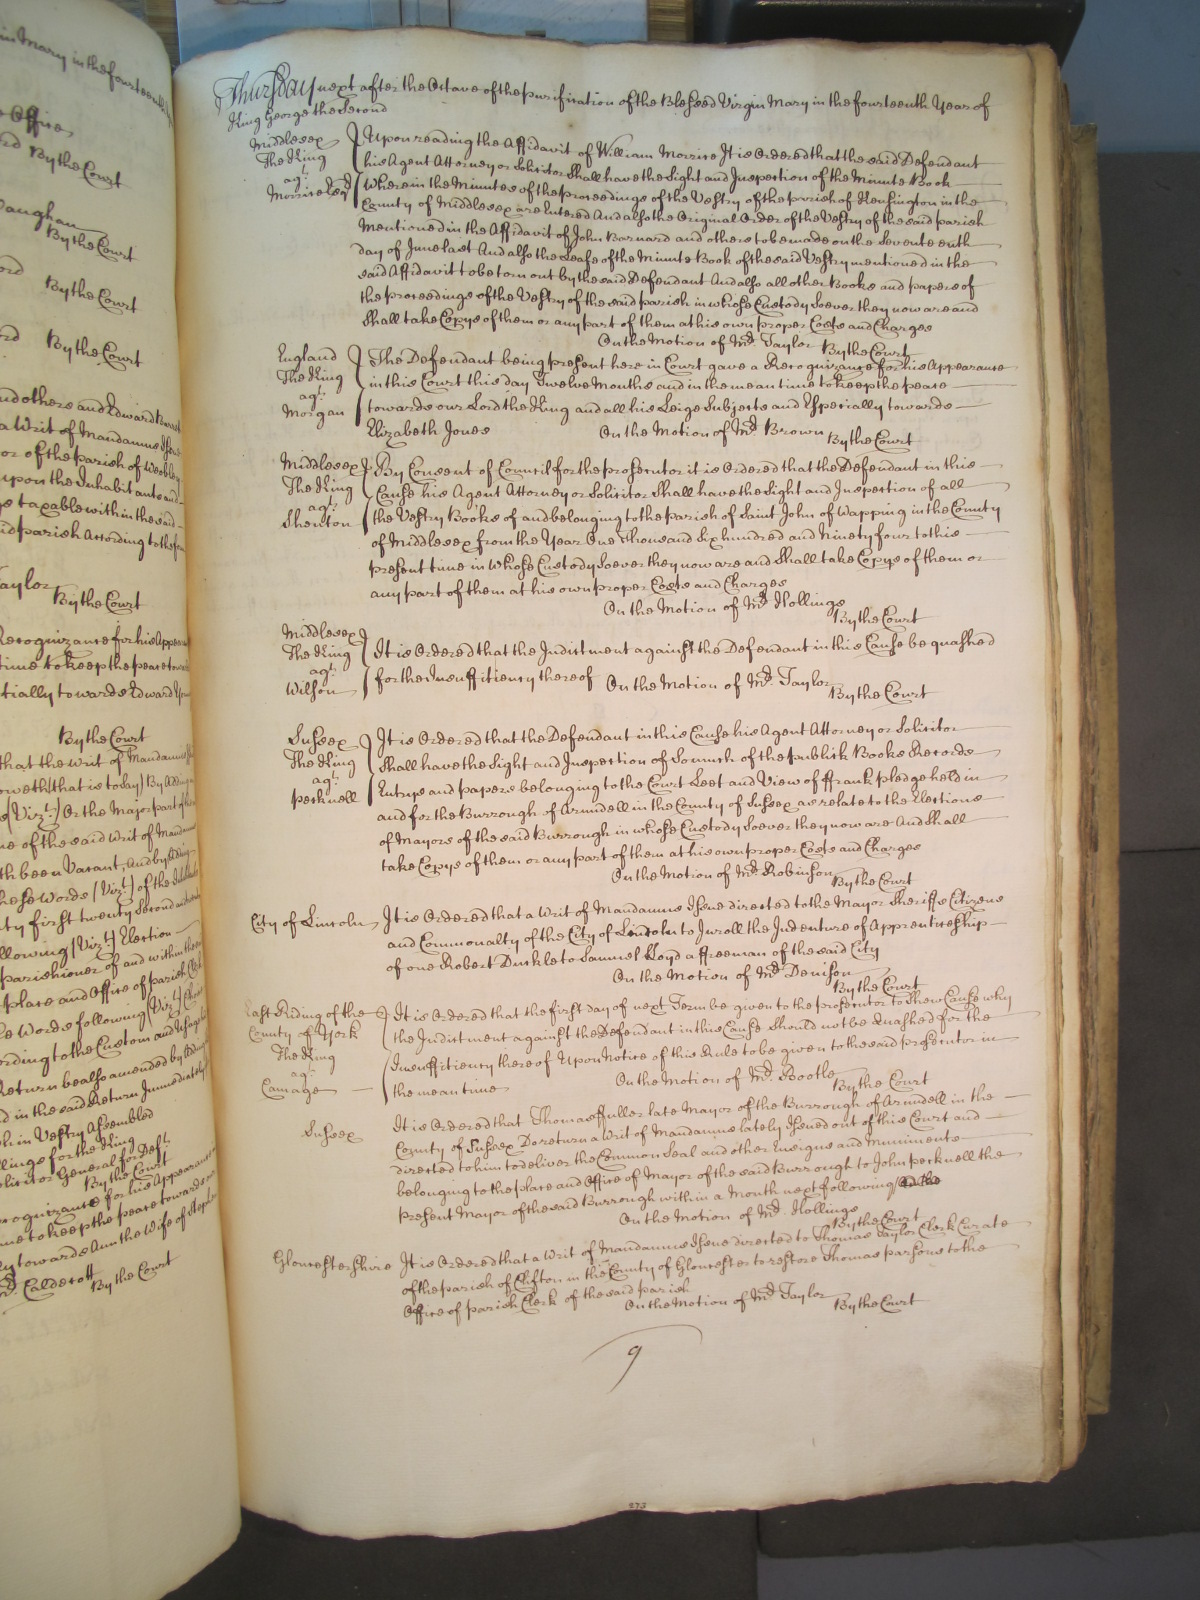 in Mary in the fourteenth
Office
By the Court
Vaughan
By the Court
By the Court
By the Court
and others and Edward
a Writ of Mandamus Issue
or of the parish of Weobley
upon the Inhabitants and
taxable within the said
parish According to the
Taylor
By the Court
Recognizance for his Appear
time to keep the peace towa
tially towards Edward
By the Court
that the Writ of Mandamus
oweth (that is to day) By Adding
(Vizt.) Or the Major part of
ne of the said Writ of Mandamus
th been Vacant, And by adding
hese Words (Vizt.) of the
ty first twenty Second and
llowing (Vizt.) Election
parishioner of and within the
place and Office of parish Clerk
Words following (Vizt.)
rding to the Custom and Usage
Return be also amended by adding
in the said Return Immediately
in Vestry Assembled
llings for the King
olicitor General for Deft.
By the Court
cognizance for his Appearance
me to keep the peace towards
towards Ann the Wife of Stephen
Mr. Caldecott By the Court
Thursday next after the Octave of the purification of the Blessed Virgin Mary in the fourteenth Year of
King George the Second
Middlesex
The King
agt.
Morrice Esqr
Upon reading the Affidavit of William Morrice It is Ordered that the said Defendant
his Agent Attorney or Solicitor Shall have the Sight and Inspection of the Minute Book
Wherein the Minutes of the proceedings of the Vestry of the parish of Kensington in the
County of Middlesex are Entered And also the Original Order of the Vestry of the said parish
Mentioned in the Affidavit of John Barnard and others to be made on the Seventeenth
day of June last And also the Leafe of the Minute Book of the said Vestry mentioned in the
said Affidavit to be torn out by the said Defendant And also all other Books and papers of
the proceedings of the Vestry of the said parish in whose Custody Soever they now are and
Shall take Copys of them or any part of them at his own proper Costs and Charges
On the Motion of Mr. Taylor By the Court
England
The King
agt.
Morgan
The Defendant being present here in Court gave a Recognizance for his Appearance
in this Court this day Twelve Months and in the mean time to keep the peace
towards our Lord the King and all his Leige Subjects and Especially towards
Elizabeth Jones On the Motion of Mr. Brown By the Court
Middlesex
The King
agt.
Shenton
By Consent of Council for the prosecutor it is Ordered that the Defendant in this
Cause his Agent Attorney or Solicitor Shall have the Sight and Inspection of all
the Vestry Books of and belonging to the parish of Saint John of Wapping in the County
of Middlesex from the Year One Thousand Six hundred and Ninety four to this
present time in Whose Custody Soever they now are and Shall take Copys of them or
any part of them at his own proper Costs and Charges
On the Motion of Mr. Hollings
By the Court
Middlesex
The King
agt.
Wilson
It is Ordered that the Indictment against the Defendant in this Cause be quashed
for the Insufficiency thereof On the Motion of Mr. Taylor
By the Court
Sussex
The King
agt.
Pecknell
It is Ordered that the Defendant in this Cause his Agent Attorney or Solicitor
Shall have the Sight and Inspection of So much of the publick Books Records
Entrys and papers belonging to the Court Leet and View of ffrank pledge held in
and for the Burrough of Arundell in the County of Sussex as relate to the Elections
of Mayors of the said Burrough in whose Custody Soever they now are And Shall
take Copys of them or any part of them at his own proper Costs and Charges
On the Motion of Mr. Robinson
By the Court
City of Lincoln
It is Ordered that a Writ of Mandamus Issue directed to the Mayor Sheriffs Citizens
and Commonalty of the City of Lincoln to Inroll the Indenture of Apprenticeship
of one Robert Dunkle to Samuel Lloyd a ffreeman of the said City
On the Motion of Mr. Denison
By the Court
East Riding of the
County of York
The King
agt.
Camage
It is Ordered that the first day of next Term be given to the prosecutor to Shew Cause why
the Indictment against the Defendant in this Cause Should not be Quashed for the
Insufficiency thereof Upon Notice of this Rule to be given to the said prosecutor in
the mean time On the Motion of Mr. Bootle
By the Court
Sussex
It is Ordered that Thomas ffuller late Mayor of the Burrough of Arundell in the
County of Sussex Do return a Writ of Mandamus lately Issued out of this Court and
directed to him to deliver the Common Seal and other Ensigns and Muniments
belonging to the place and Office of Mayor of the said Burrough to John Pecknell the
present Mayor of the said Burrough within a Month next following
On the Motion of Mr. Hollings
By the Court
Gloucestershire
It is Ordered that a Writ of Mandamus Issue directed to Thomas Taylor Clerk Curate
of the parish of Clifton in the County of Gloucester to restore Thomas parsons to the
Office of parish Clerk of the said parish
On the Motion of Mr. Taylor By the Court
9
273